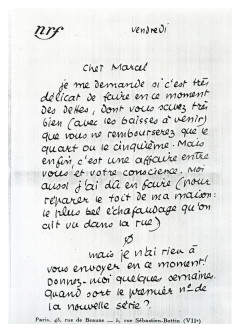 nrf
vendredi
Cher Marcel
je me demande si c'est très
délicat de faire en ce moment
des dettes, dont vous savez très
bien (avec les baisses à venir)
que vous ne rembourserez que le
quart ou le cinquième. Mais
enfin, c'est une affaire entre
vous et votre conscience. Moi
aussi j'ai dû en faire (pour
réparer le toit de ma maison:
le plus bel échafaudage qu'on
ait vu dans la rue)
mais je n'ai rien à
vous envoyer en ce moment!
Donnez-moi quelques semaines.
Quand sort le premier nº de
la nouvelle série?
Paris, 43, rue de Beaune — 5, rue Sébastien-Bottin (VIIe)